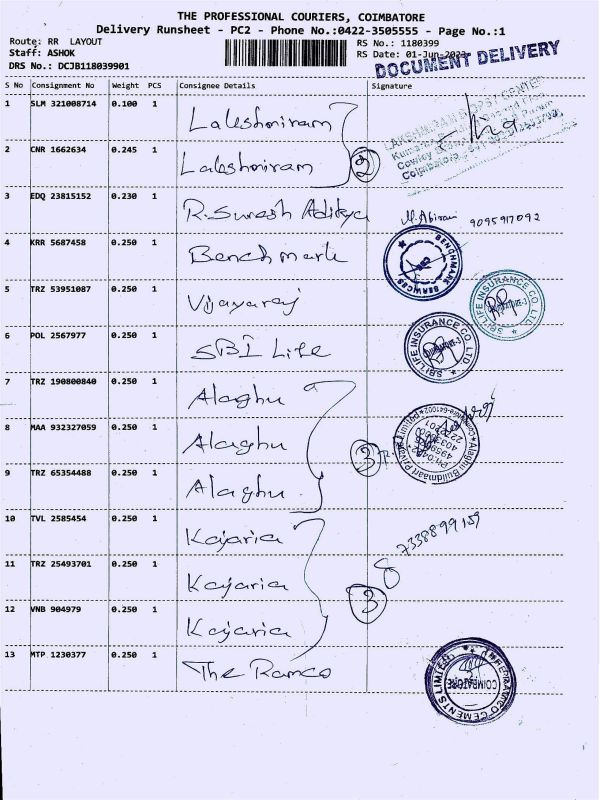 THE PROFESSIONAL COURIERS, COIMBATORE
Delivery Runsheet - PC2 - Phone No.:0422-3505555 - Page No.:1
Route: RR LAYOUT
Staff: ASHOK
DRS No.: DCJB118039901
RS No.: 1180399
RS Date: 01-Jun-2023
DOCUMENT DELIVERY
S No Consignment No Weight PCS Consignee Details Signature
1 SLM 321008714 0.100 1 Lakshmiram
2 CNR 1662634 0.245 1 Lakshmiram 2
3 EDQ 23815152 0.230 1 R. Suresh Aditya M. Abirami 9095917092
4 KRR 5687458 0.250 1 Benchmark
BENCHMARK SERVICES
5 TRZ 53951087 0.250 1 Vijayaraj
SBI LIFE INSURANCE CO. LTD.
6 POL 2567977 0.250 1 SBI Life
SBI LIFE INSURANCE CO. LTD.
7 TRZ 190800840 0.250 1 Alaghu
8 MAA 932327059 0.250 1 Alaghu 3
Alaghu Buildmaart Private Limited
Coimbatore-641002
9 TRZ 65354488 0.250 1 Alaghu
10 TVL 2585454 0.250 1 Kajaria
7338899159
11 TRZ 25493701 0.250 1 Kajaria 3
12 VNB 904979 0.250 1 Kajaria
13 MTP 1230377 0.250 1 The Ramco
CEMENTS LIMITED
COIMBATORE